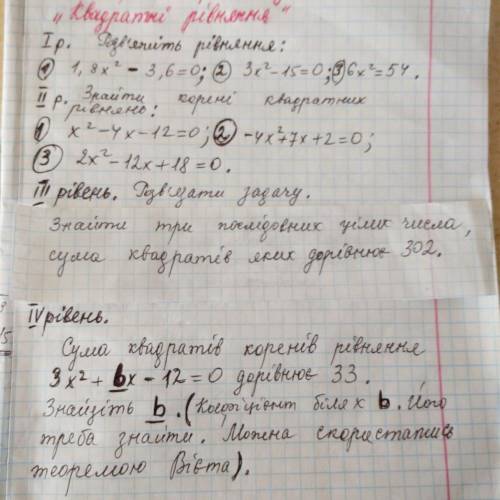 „Квадратні рівняння“
I р. Розв'яжіть рівняння:
① 1,8x² - 3,6=0; ② 3x²-15=0; ③ 6x²=54.
II р. Знайти корені квадратних
рівнянь:
① x²-4x-12=0; ② -4x²+7x+2=0;
③ 2x²-12x+18=0.
III рівень. Розв'язати задачу.
Знайти три послідовних цілих числа,
сума квадратів яких дорівнює 302.
IV рівень.
Сума квадратів коренів рівняння
3x²+bx-12=0 дорівнює 33.
Знайдіть b. (Коефіцієнт біля x b. Його
треба знайти. Можна скористатись
теоремою Вієта).